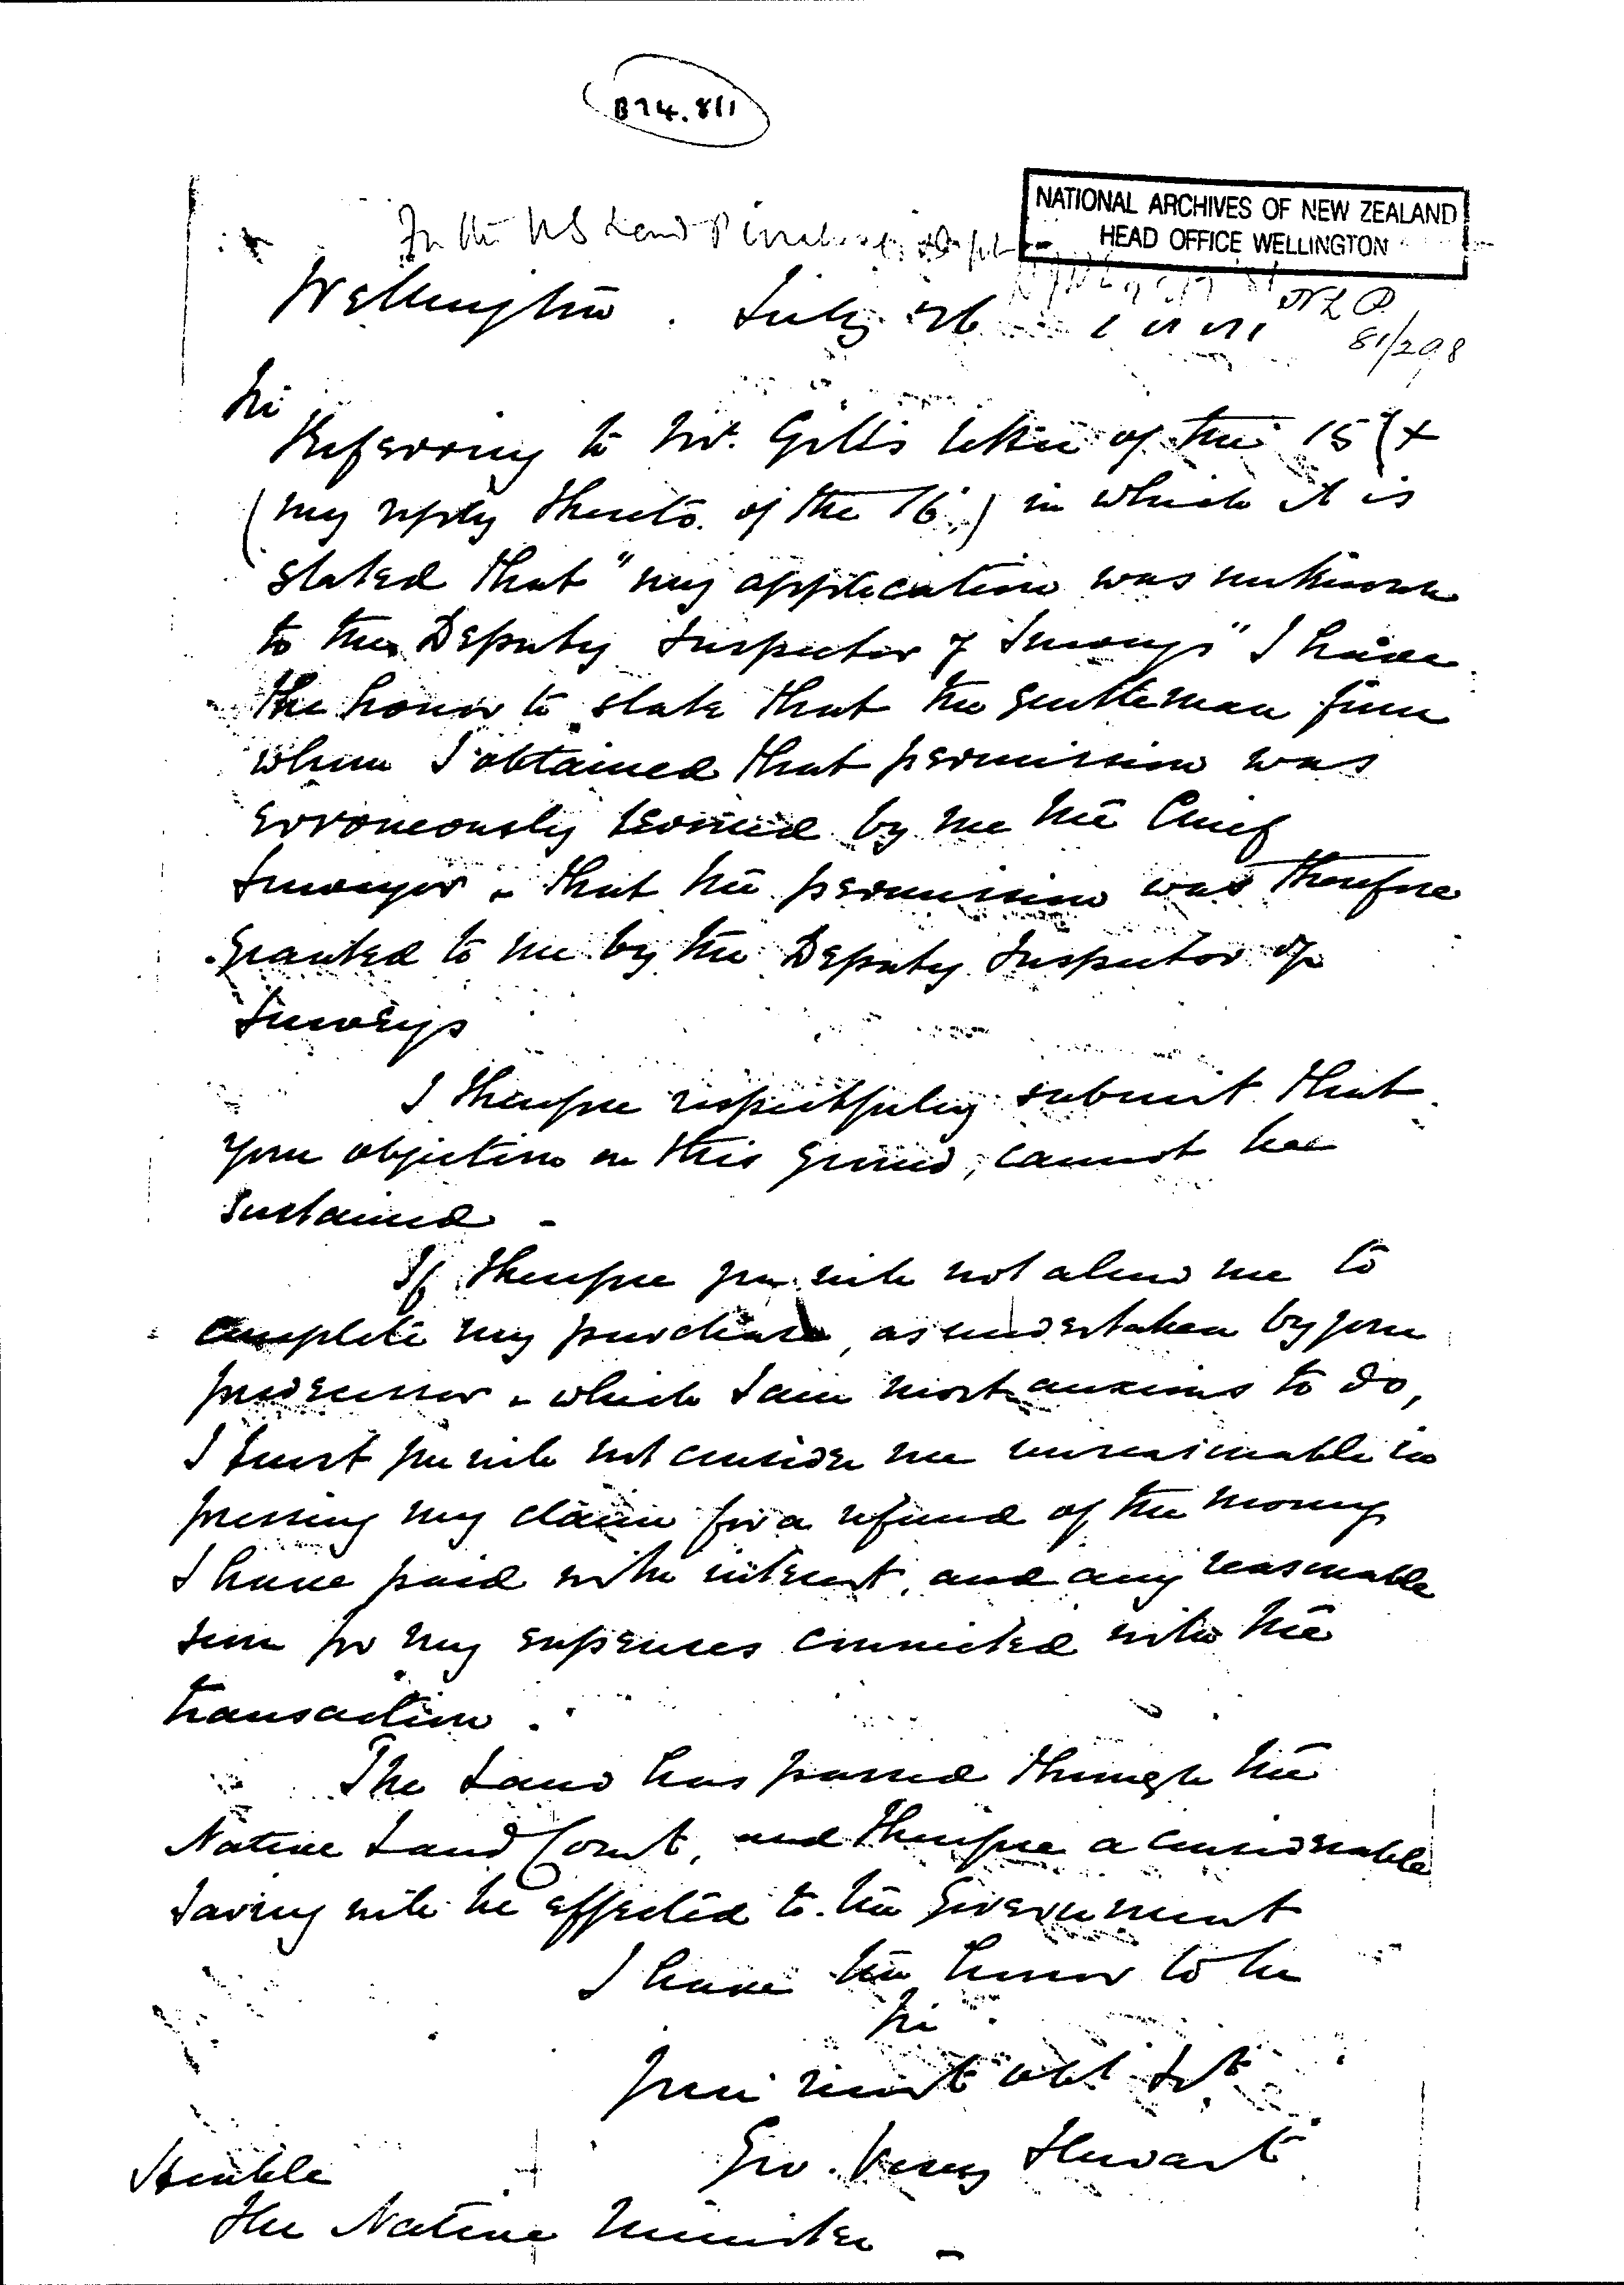 B74.811
NATIONAL ARCHIVES OF NEW ZEALAND
HEAD OFFICE WELLINGTON
In the Land Purchase Dept
Wellington. July 26
NLP
81/298
Sir
Referring to Mr. Gill's letter of the 15th
(my reply thereto of the 16) in which it is
stated that "my application was unknown
to the Deputy Inspector of Surveys" I have
the honor to state that the gentleman from
whom I obtained that permission was
erroneously termed by me the Chief
Surveyor & that the permission was therefore
granted to me by the Deputy Inspector of
Surveys
I therefore respectfully submit that
your objection on this ground, cannot be
sustained -
If therefore you will not allow me to
complete my purchase, as undertaken by your
predecessor & which I am most anxious to do,
I trust you will not consider me unreasonable in
pressing my claim for a refund of the money
I have paid with interest, and any reasonable
sum for my expenses connected with the
transaction.
The Land has passed through the
Native Land Court, and therefore a considerable
saving will be effected to the Government
I have the honor to be
Sir
your most obt Svt
Geo. Vesey Stewart
Honble
The Native Minister -